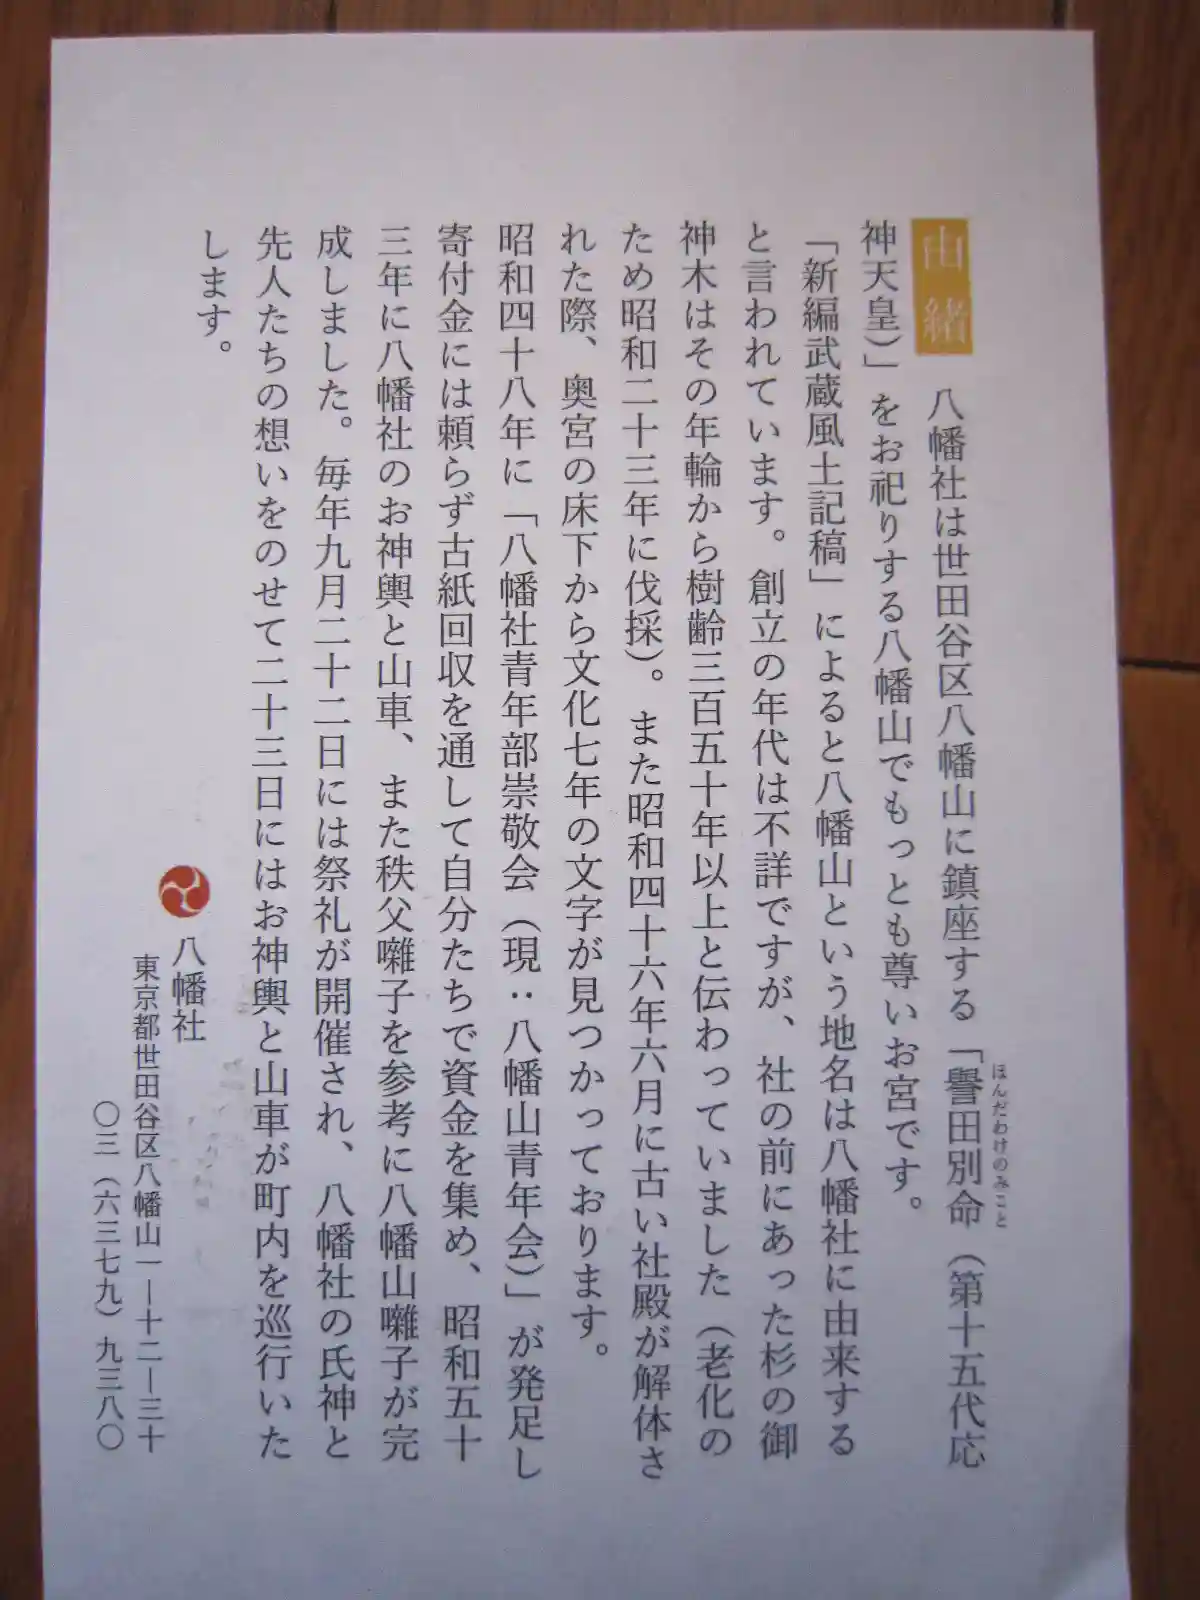 由緒
八幡社は世田谷区八幡山に鎮座する「譽田別命（第十五代応
ほんだわけのみこと
神天皇）」をお祀りする八幡山でもっとも尊いお宮です。
「新編武蔵風土記稿」によると八幡山という地名は八幡社に由来する
と言われています。創立の年代は不詳ですが、社の前にあった杉の御
神木はその年輪から樹齢三百五十年以上と伝わっていました（老化の
ため昭和二十三年に伐採）。また昭和四十六年六月に古い社殿が解体さ
れた際、奥宮の床下から文化七年の文字が見つかっております。
昭和四十八年に「八幡社青年部崇敬会（現：八幡山青年会）」が発足し
寄付金には頼らず古紙回収を通して自分たちで資金を集め、昭和五十
三年に八幡社のお神輿と山車、また秩父囃子を参考に八幡山囃子が完
成しました。毎年九月二十二日には祭礼が開催され、八幡社の氏神と
先人たちの想いをのせて二十三日にはお神輿と山車が町内を巡行いた
します。
八幡社
東京都世田谷区八幡山一ー十二ー三十
〇三（六三七九）九三八〇